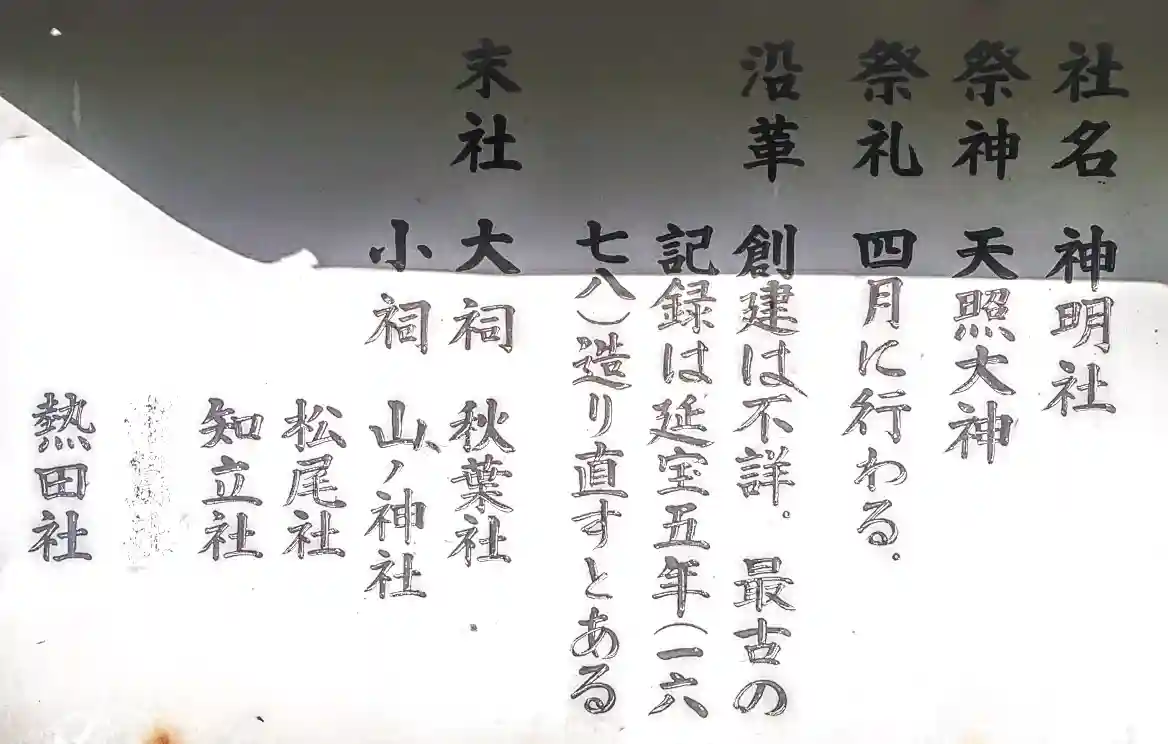 社名　神明社
祭神　天照大神
祭礼　四月に行わる.
沿革　創建は不詳.　最古の
記録は延宝五年(一六
七八)造り直すとある
末社　大祠　秋葉社
小祠　山ノ神社
松尾社
知立社
熱田社